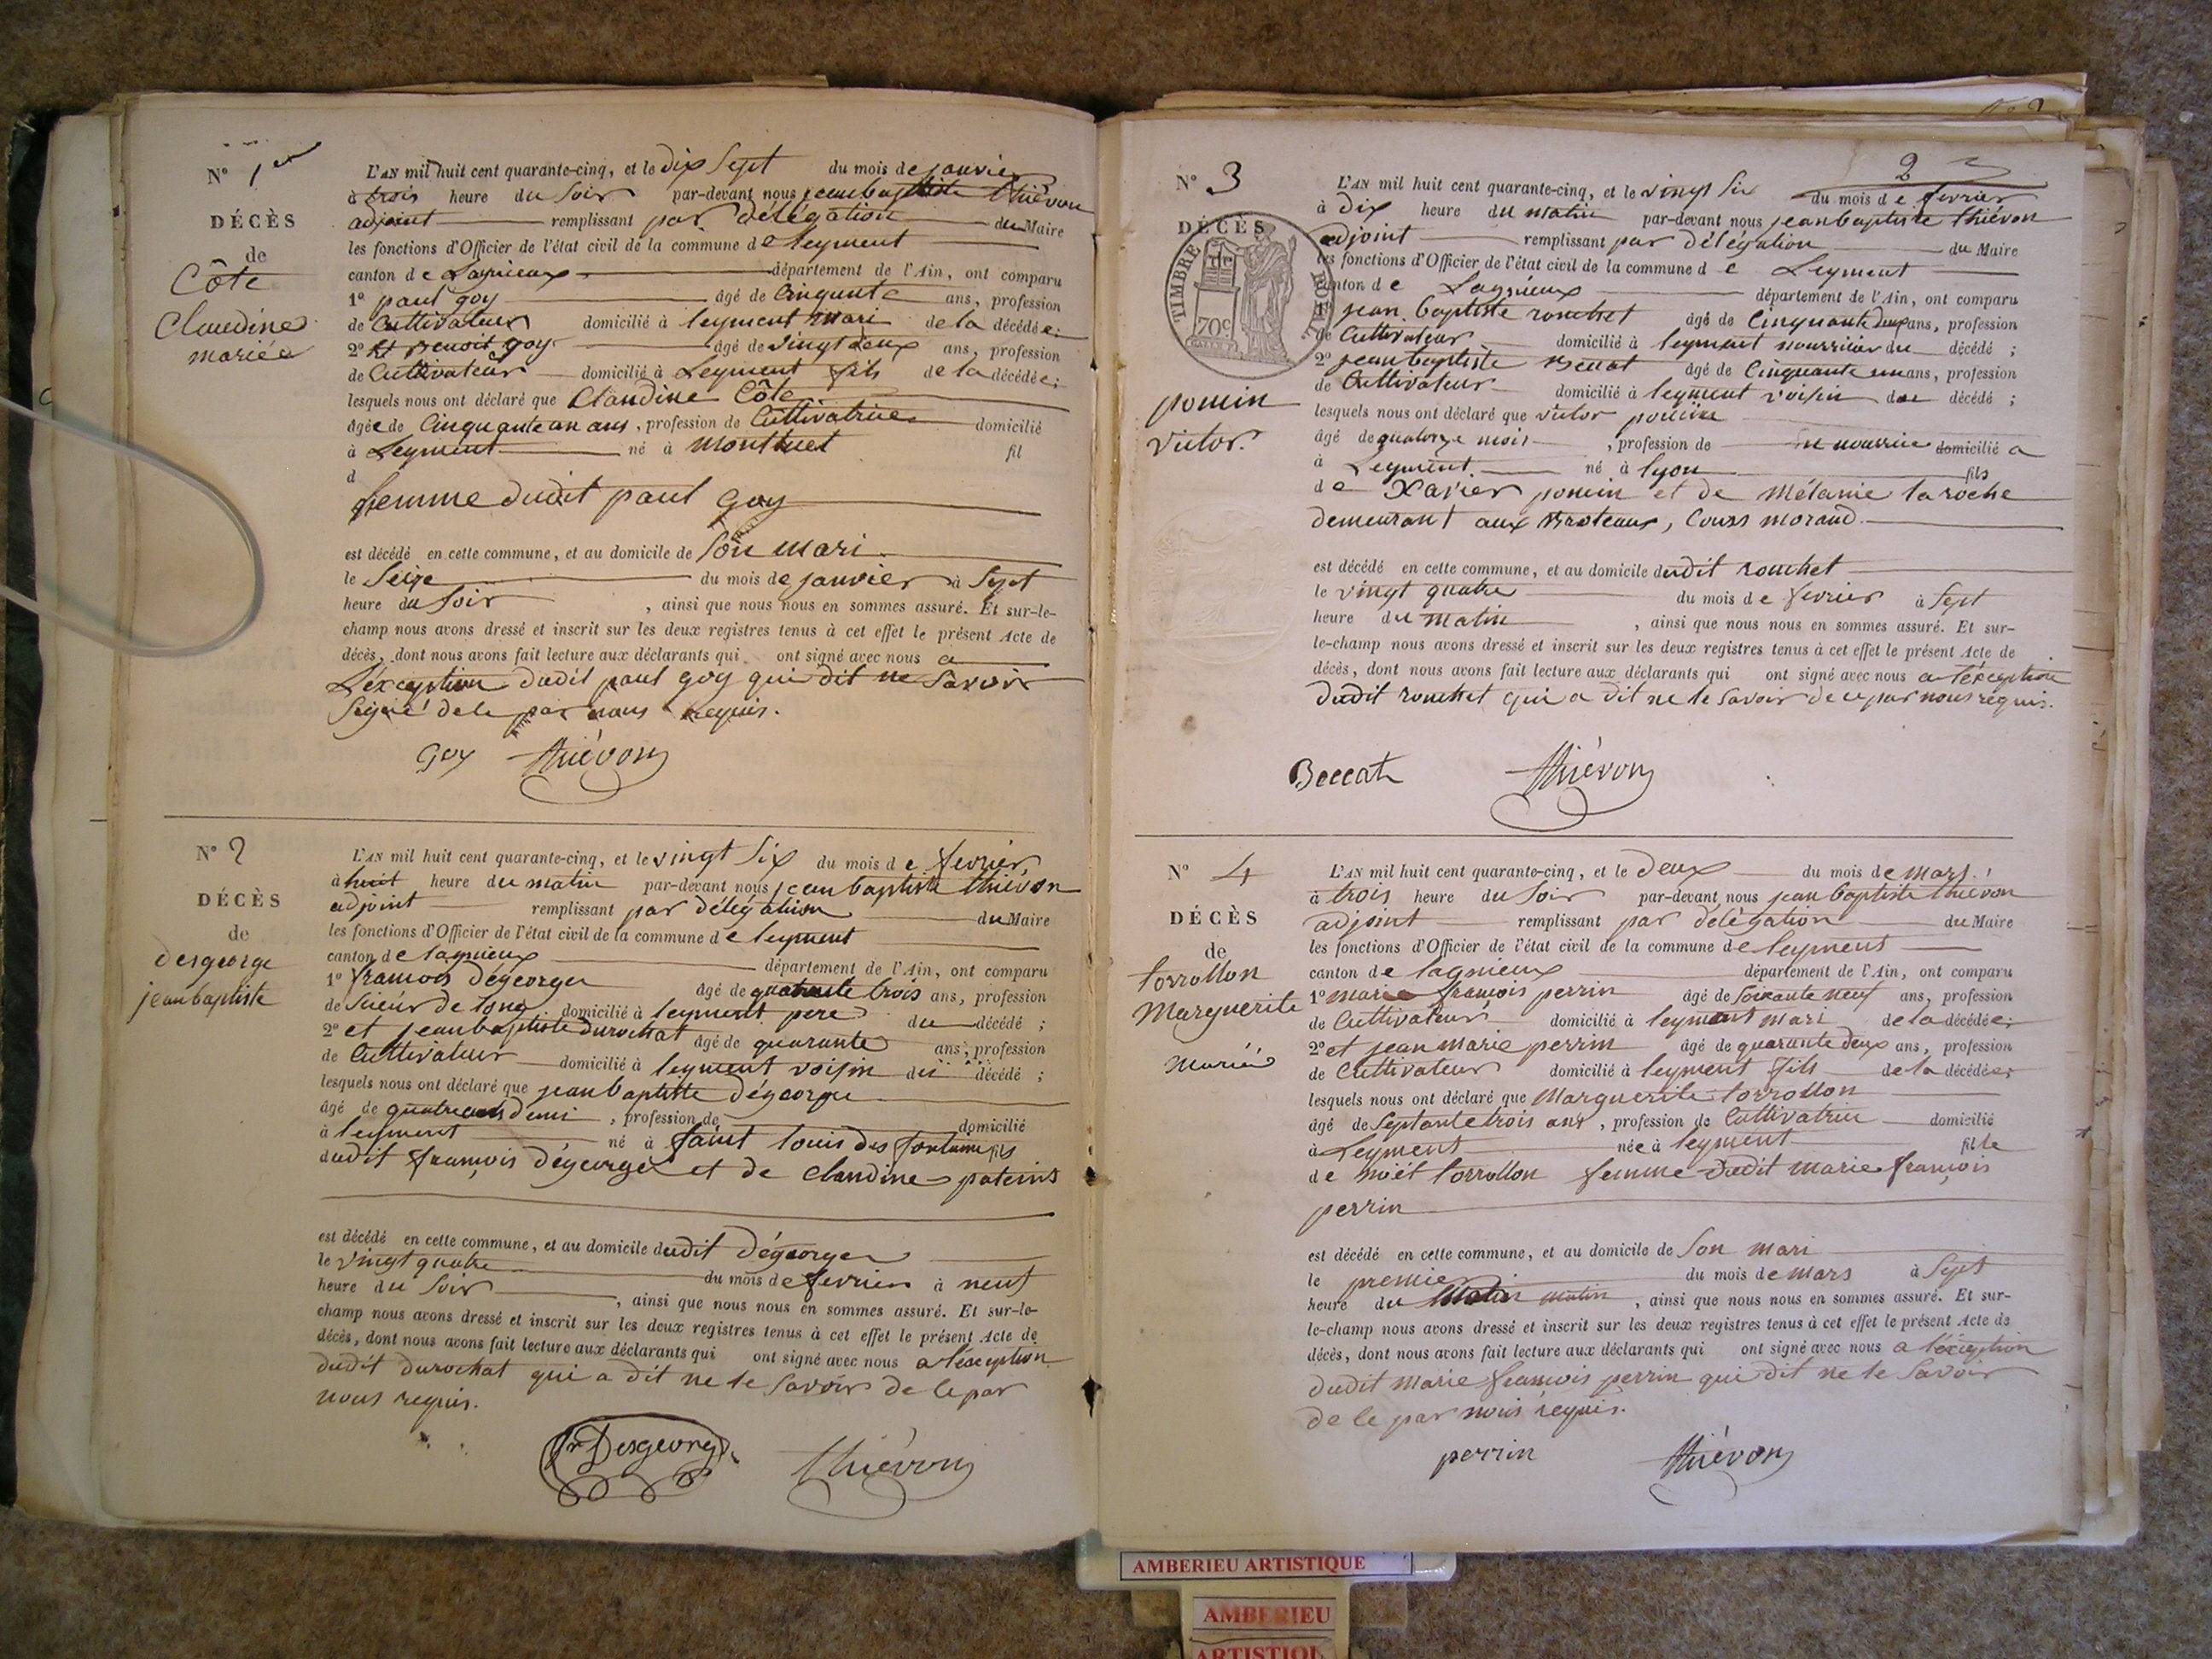 N° 1er
DÉCÈS
de
Côte
Claudine
mariée
L'AN mil huit cent quarante-cinq, et le dix sept du mois de janvier
à trois heure du soir par-devant nous jean baptiste thiévon
adjoint remplissant par délégation du Maire
les fonctions d'Officier de l'état civil de la commune de leyment
canton de Lagnieux département de l'Ain, ont comparu
1° paul goy âgé de Cinquante ans, profession
de Cultivateur domicilié à leyment mari de la décédée;
2° et Benoit goy âgé de vingt deux ans, profession
de Cultivateur domicilié à Leyment fils de la décédée;
lesquels nous ont déclaré que Claudine Côte
âgée de Cinquante un ans, profession de Cultivatrice domicilié
à Leyment né à Montluel fil
d
femme dudit paul goy
est décédé en cette commune, et au domicile de son mari
le Seize du mois de janvier à Sept
heure du soir, ainsi que nous nous en sommes assuré. Et sur-le-
champ nous avons dressé et inscrit sur les deux registres tenus à cet effet le présent Acte de
décès, dont nous avons fait lecture aux déclarants qui ont signé avec nous a
L'exception dudit paul goy qui dit ne Savoir
Signé de le par nous requis.
Goy thiévon
N° 2
DÉCÈS
de
desgeorge
jean baptiste
L'AN mil huit cent quarante-cinq, et le vingt six du mois de fevrier,
à huit heure du matin par-devant nous jean baptiste thiévon
adjoint remplissant par délégation du Maire
les fonctions d'Officier de l'état civil de la commune de leyment
canton de lagnieux département de l'Ain, ont comparu
1° francois dégeorge âgé de quarante trois ans, profession
de Scieur de long domicilié à leyment pere du décédé;
2° et jean baptiste durochat âgé de quarante ans, profession
de Cultivateur domicilié à leyment voisin du décédé;
lesquels nous ont déclaré que jean baptiste dégeorge
âgé de quatre ans demi, profession de domicilié
à leyment né à saint louis des fontaine fils
dudit françois dégeorge et de Claudine
est décédé en cette commune, et au domicile dudit dégeorge
le vingt quatre du mois de fevrier à neuf
heure du soir, ainsi que nous nous en sommes assuré. Et sur-le-
champ nous avons dressé et inscrit sur les deux registres tenus à cet effet le présent Acte de
décès, dont nous avons fait lecture aux déclarants qui ont signé avec nous a l'éxception
dudit durochat qui a dit ne le Savoir de le par
nous requis.
fr Desgeorge thiévon
2
N° 3
DÉCÈS
de
TIMBRE ROYAL
70c
pomin
victor.
L'AN mil huit cent quarante-cinq, et le vingt Six du mois de fevrier
à dix heure du matin par-devant nous jean baptiste thiévon
adjoint remplissant par délégation du Maire
les fonctions d'Officier de l'état civil de la commune de Leyment
canton de Lagnieux département de l'Ain, ont comparu
1° jean baptiste rouchet âgé de Cinquante deux ans, profession
de Cultivateur domicilié à leyment nourricier du décédé;
2° jean baptiste Beccat âgé de Cinquante un ans, profession
de Cultivateur domicilié à leyment voisin du décédé;
lesquels nous ont déclaré que victor pomin
âgé de quatorze mois, profession de en nourrice domicilié a
à Leyment né à lyon fils
de Xavier pomin et de Mélanie laroche
demeurant aux Broteaux, Cours morand.
est décédé en cette commune, et au domicile dudit rouchet
le vingt quatre du mois de fevrier à Sept
heure du matin, ainsi que nous nous en sommes assuré. Et sur-
le-champ nous avons dressé et inscrit sur les deux registres tenus à cet effet le présent Acte de
décès, dont nous avons fait lecture aux déclarants qui ont signé avec nous a l'éxception
dudit rouchet qui a dit ne le Savoir de le par nous requis.
Beccat thiévon
N° 4
DÉCÈS
de
torrollon
Marguerite
Mariée
L'AN mil huit cent quarante-cinq, et le deux du mois de mars
à trois heure du soir par-devant nous jean baptiste thiévon
adjoint remplissant par délégation du Maire
les fonctions d'Officier de l'état civil de la commune de leyment
canton de lagnieux département de l'Ain, ont comparu
1° marie françois perrin âgé de Soixante neuf ans, profession
de Cultivateur domicilié à leyment mari de la décédée;
2° et jean marie perrin âgé de quarante deux ans, profession
de Cultivateur domicilié à leyment fils de la décédée;
lesquels nous ont déclaré que Marguerite torrollon
âgé de Septante trois ans, profession de Cultivatrice domicilié
à Leyment née à leyment fille
de noël torrollon femme dudit marie françois
perrin
est décédé en cette commune, et au domicile de Son mari
le premier du mois de mars à Sept
heure du matin matin, ainsi que nous nous en sommes assuré. Et sur-
le-champ nous avons dressé et inscrit sur les deux registres tenus à cet effet le présent Acte de
décès, dont nous avons fait lecture aux déclarants qui ont signé avec nous a l'éxception
dudit marie francois perrin qui dit ne le Savoir
de le par nous requis.
perrin thiévon
AMBERIEU ARTISTIQUE
AMBERIEU